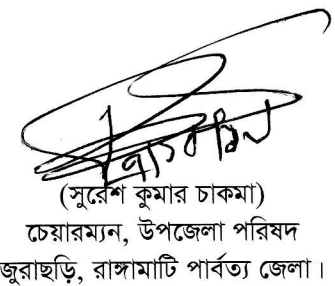 (সুরেশ কুমার চাকমা)
চেয়ারম্যন, উপজেলা পরিষদ
জুরাছড়ি, রাঙ্গামাটি পার্বত্য জেলা।